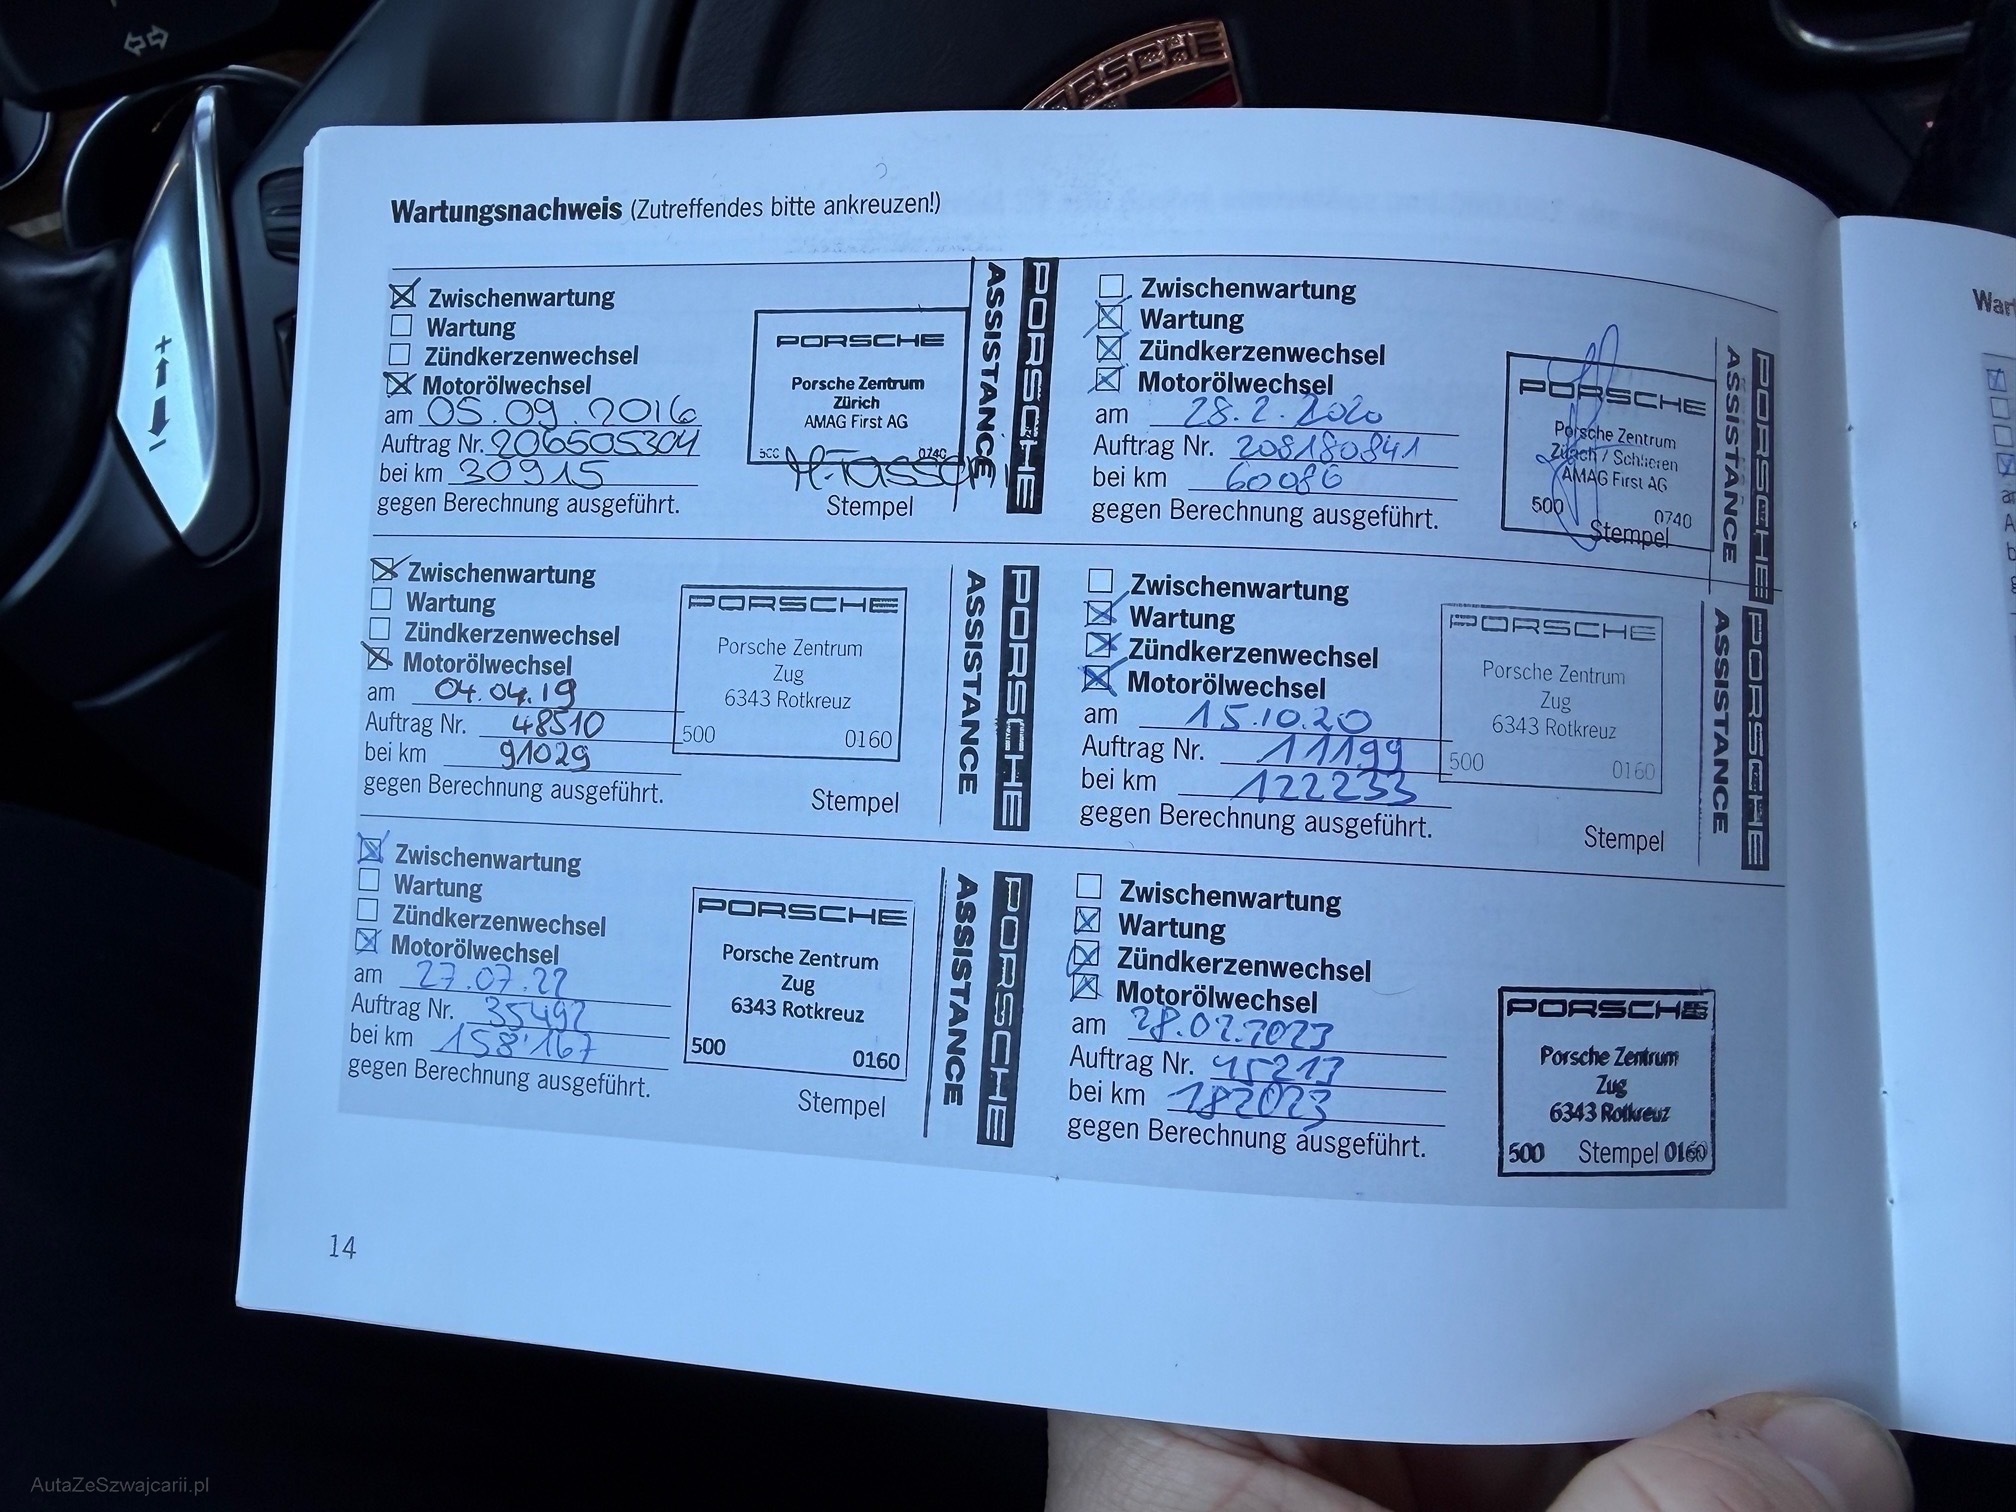 PORSCHE
Wartungsnachweis (Zutreffendes bitte ankreuzen!)
Zwischenwartung
Wartung
Zündkerzenwechsel
Motorölwechsel
am 05.09.2016
Auftrag Nr. 206505304
bei km 30915
gegen Berechnung ausgeführt.
PORSCHE
Porsche Zentrum
Zürich
AMAG First AG
0740
Stempel
ASSISTANCE
PORSCHE
Zwischenwartung
Wartung
Zündkerzenwechsel
Motorölwechsel
am 28.2.2020
Auftrag Nr. 208180841
bei km 60086
gegen Berechnung ausgeführt.
PORSCHE
Porsche Zentrum
Zürich / Schlieren
AMAG First AG
500 0740
Stempel
ASSISTANCE
PORSCHE
Zwischenwartung
Wartung
Zündkerzenwechsel
Motorölwechsel
am 04.04.19
Auftrag Nr. 48510
bei km 91029
gegen Berechnung ausgeführt.
PORSCHE
Porsche Zentrum
Zug
6343 Rotkreuz
500 0160
Stempel
ASSISTANCE
PORSCHE
Zwischenwartung
Wartung
Zündkerzenwechsel
Motorölwechsel
am 15.10.20
Auftrag Nr. 11199
bei km 122233
gegen Berechnung ausgeführt.
PORSCHE
Porsche Zentrum
Zug
6343 Rotkreuz
500 0160
Stempel
ASSISTANCE
PORSCHE
Zwischenwartung
Wartung
Zündkerzenwechsel
Motorölwechsel
am 27.07.22
Auftrag Nr. 35492
bei km 158'167
gegen Berechnung ausgeführt.
PORSCHE
Porsche Zentrum
Zug
6343 Rotkreuz
500 0160
Stempel
ASSISTANCE
PORSCHE
Zwischenwartung
Wartung
Zündkerzenwechsel
Motorölwechsel
am 28.02.2023
Auftrag Nr. 45213
bei km 182023
gegen Berechnung ausgeführt.
PORSCHE
Porsche Zentrum
Zug
6343 Rotkreuz
500 Stempel 0160
14
AutaZeSzwajcarii.pl